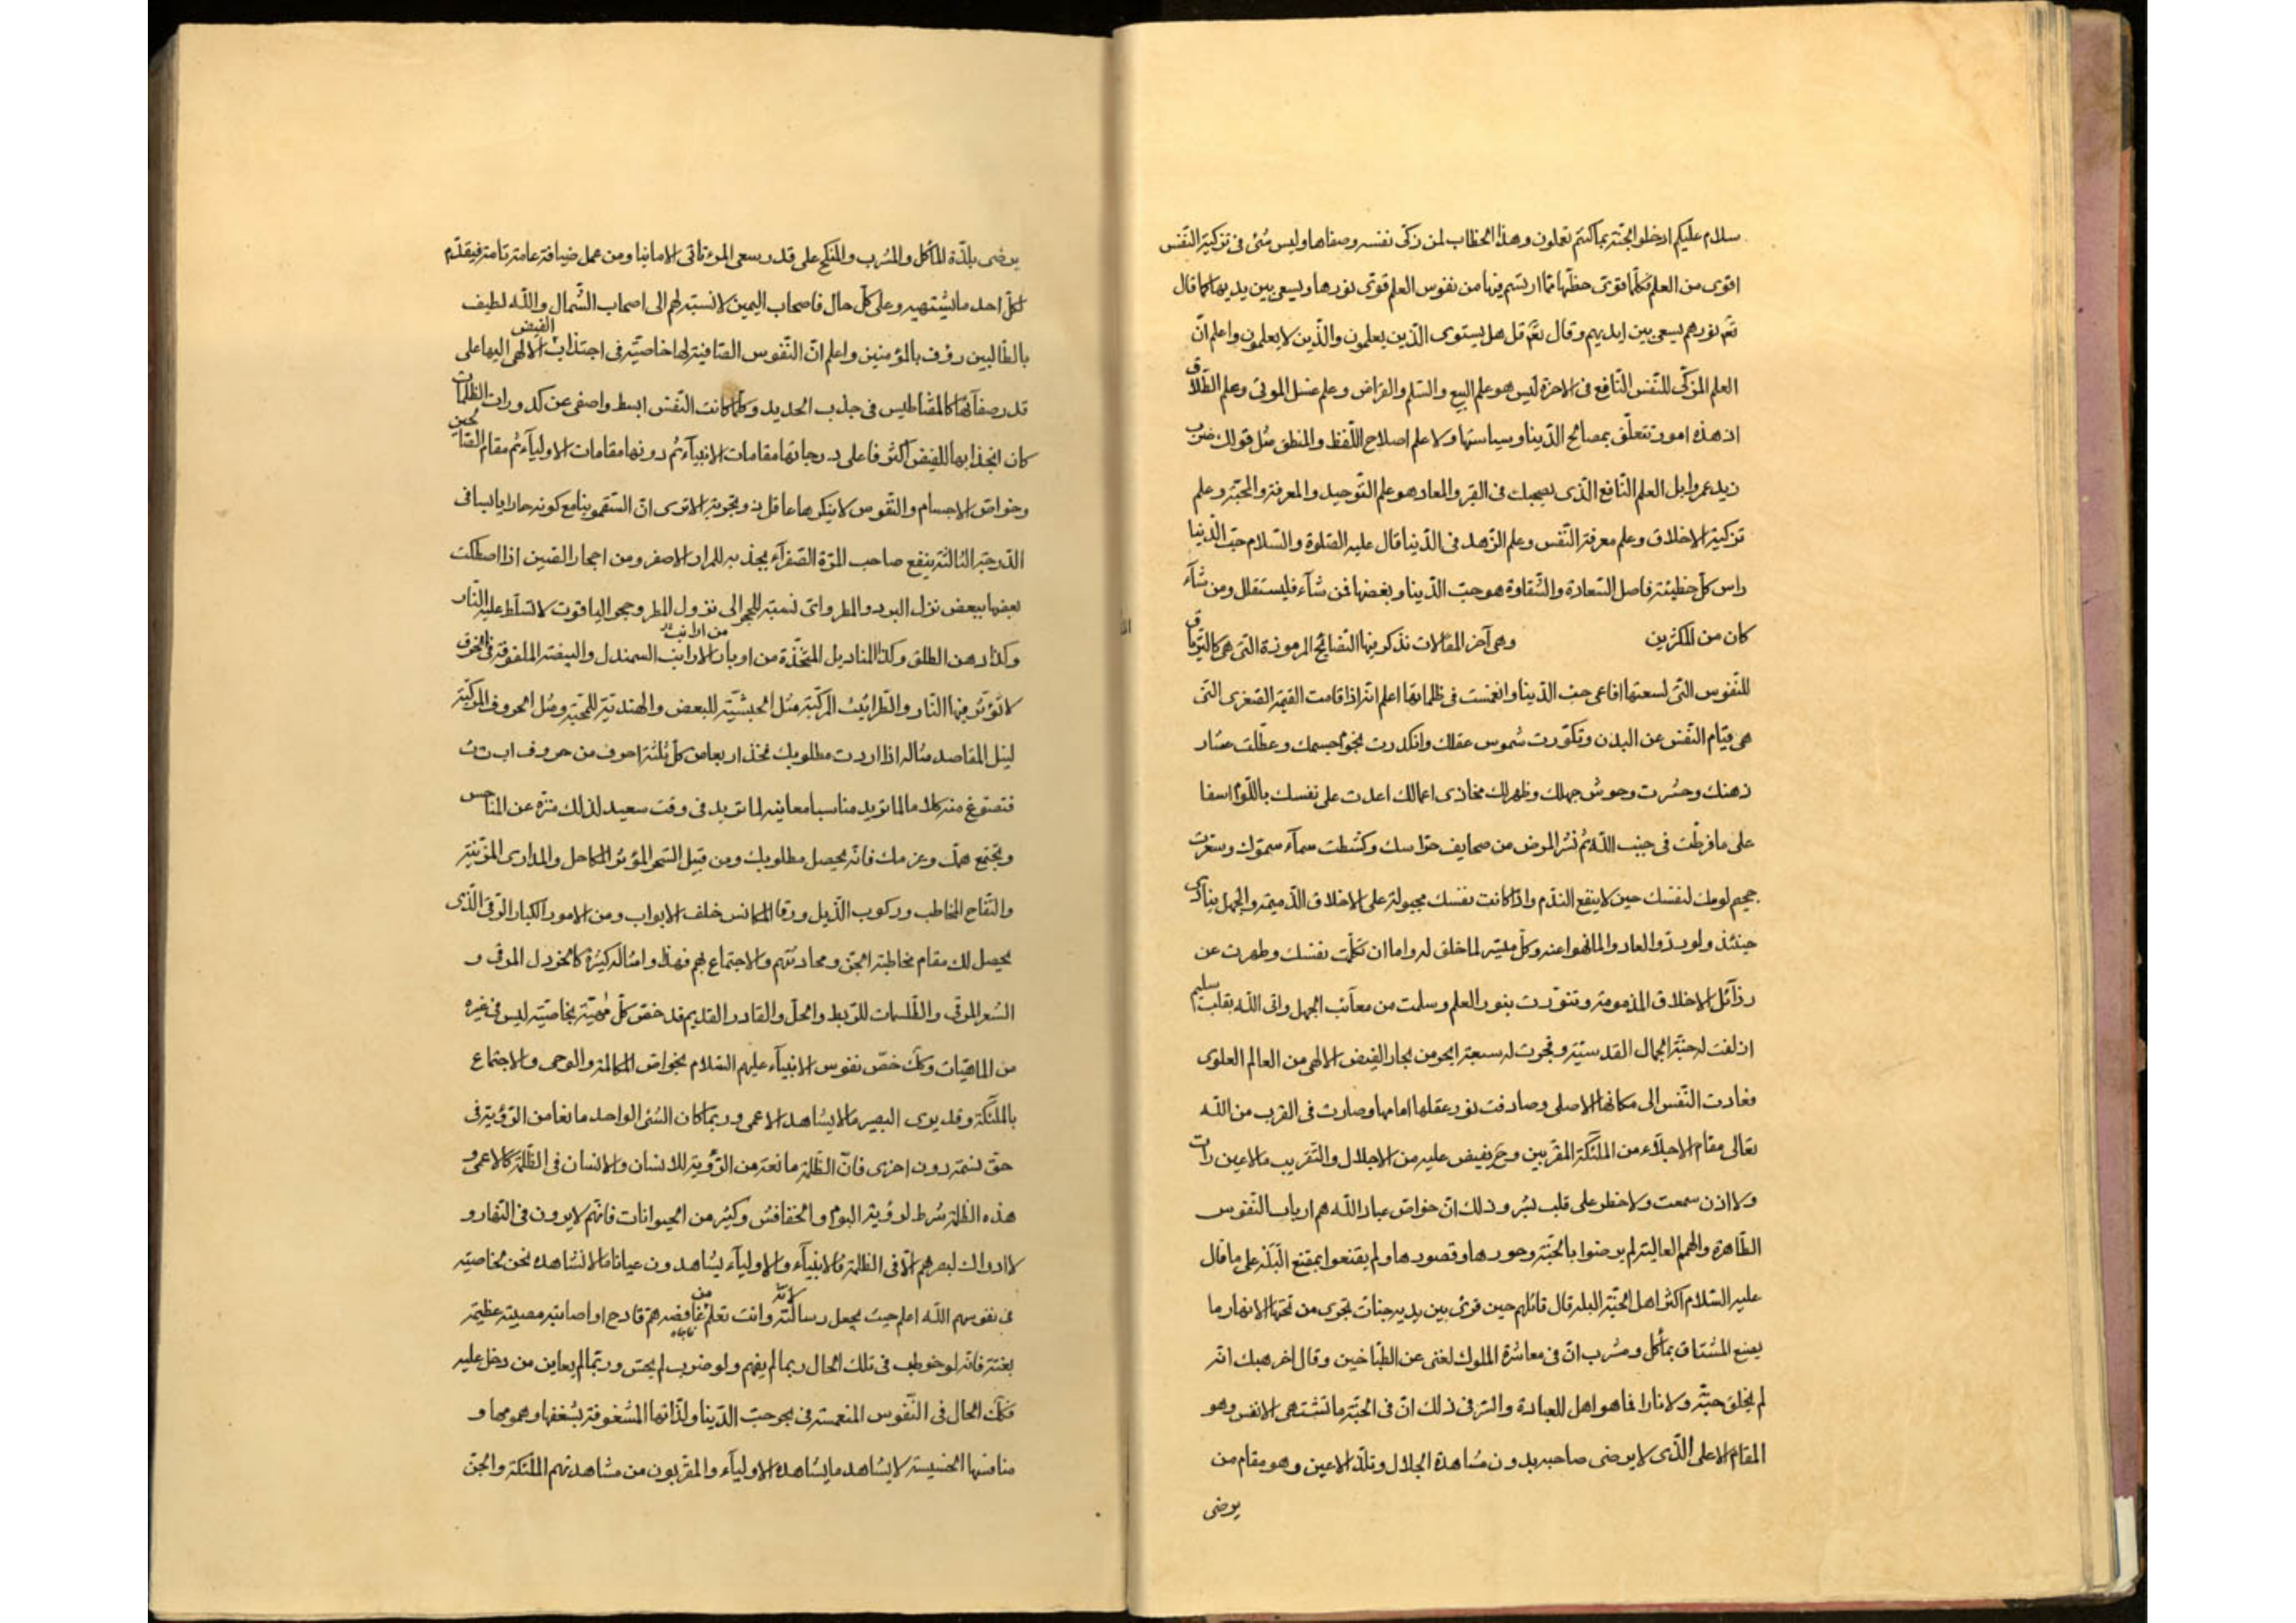 سلام عليكم ادخلوا الجنة بما كنتم تعلون وهذا الخطاب لمن زكى نفسه وصفاها وليس شئ فى تزكية النفس
اقوى من العلم فكلما قوى حظها مما ارتسم فيها من نفوس العلم قوى نورها ويسعى بين يديها كما قال
تع نورهم يسعى بين ايديهم وقال تع قل هل يستوى الذين يعلمون والذين لا يعلمون واعلم ان
العلم المزكى للنفس النافع فى الاخرة ليس هو علم البيع والسلم والقراض وعلم غسل الموتى وعلم الطلاق
اذ هذه امور تتعلق بمصالح الدنيا وسياستها ولا علم اصلاح اللفظ والمنطق مثل قولك ضرب
زيد عمروا بل العلم النافع الذى يصحبك فى القبر والمعاد هو علم التوحيد والمعرفة والمحبة وعلم
تزكية الاخلاق وعلم معرفة النفس وعلم الزهد فى الدنيا قال عليه الصلوة والسلام حب الدنيا
راس كل خطيئة فاصل السعادة والشقاوة هو حب الدنيا وبغضها فمن شآء فليستقلل ومن شآء
كان من المكثرين وهى آخر المقالات نذكر فيها النصايح المرموزة التى هى كالترياق
للنفوس التى لسعتها افاعى حب الدنيا وانغمست فى ظلماتها اعلم انه اذا قامت القيمة الصغرى التى
هى قيام النفس عن البدن وتكورت شموس عقلك وانكدرت نجوم جسمك وعطلت عشار
ذهنك وحشرت وحوش جهلك وظهر لك مخازى اعمالك اعدت على نفسك باللوم اسفا
على ما فرطت فى جنب الله ثم نشر المرض من صحايف حواسك وكشطت سمآء سموك وسعرت
جحيم لومك لنفسك حين لا ينفع الندم واذا كانت نفسك مجبولة على الاخلاق الذميمة والجهل ينادى
حينئذ ولو ردوا لعادوا لما نهوا عنه وكل ميسر لما خلق له واما ان تكلمت نفسك وطهرت عن
رذآئل الاخلاق المذمومة وتنورت بنور العلم وسلمت من معآئب الجهل واتى الله بقلب سليم
ازلفت له جنة الجمال القدسية وفجرت له سبعة ابحر من بحار الفيض الالهى من العالم العلوى
فعادت النفس الى مكانها الاصلى وصادفت نور عقلها امامها وصارت فى القرب من الله
تعالى مقام الاجلاء من الملئكة المقربين وح يفيض عليه من الاجلال والتقريب ما لا عين رات
ولا اذن سمعت ولا خطر على قلب بشر وذلك ان خواص عباد الله هم ارباب النفوس
الطاهرة والهمم العالية لم يرضوا بالجنة وحورها وقصورها ولم يقنعوا بمقنع البله على ما قال
عليه السلام اكثر اهل الجنة البله قال قائلهم حين قرئ بين يديه جنات تجرى من تحتها الانهار ما
يصنع المشتاق بمأكل ومشرب ان فى معاشرة الملوك لغنى عن الطباخين وقال اخر هبك انه
لم يخلق جنة ولا نارا فما هو اهل للعبادة والسر فى ذلك ان فى الجنة ما تشتهى الانفس وهو
المقام الاعلى الذى لا يرضى صاحبه بدون مشاهدة الجلال وتلذ الاعين وهو مقام من
يرضى
يرضى بلذة المأكل والمشرب والمنكح على قدر سعى المرء تاتى الامانيا ومن عمل ضيافة عامة تامة فيقدم
لكل احد ما يشتهيه وعلى كل حال فاصحاب اليمين لا نسبة لهم الى اصحاب الشمال والله لطيف
بالطالبين رؤف بالمؤمنين واعلم ان النفوس الصافية لها خاصية فى اجتذاب الفيض الالهى اليها على
قدر صفآئها كالمقناطيس فى جذب الحديد وكلما كانت النفس ابسط واصفى عن كدورات الظلمات
كان انجذابها للفيض اكثر فاعلى درجاتها مقامات الانبيآء ثم دونها مقامات الاوليآء ثم مقام الصالحين
وخواص الاجسام والنفوس لا ينكرها عاقل ذو تجربة الا ترى ان السقمونيا مع كونه حارا يابسا فى
الدرجة الثالثة ينفع صاحب المرة الصفرآء يجذبه للمرار الاصفر ومن احجار الصين اذا اصطكت
بعضها ببعض نزل البرد والمطر واى نسبة للحجر الى نزول المطر وحجر الياقوت لا تسلط عليه النار
وكذا دهن الطلق وكذا المناديل المتخذة من اوبار الارانب السمندل والبيضة الملفوفة فى الخرق
من ارانب
لا تؤثر فيها النار والطرائيث المركبة مثل الحبشية للبعض والهندية للمحبة ومثل الحروف المركبة
لنيل المقاصد مثاله اذا اردت مطلوبك فخذ اربعا من كل ثلثة احرف من حروف اب ت ث
فتصوغ منه كلاما لما تريد مناسبا معانيه لما تريد فى وقت سعيد لذلك منزه عن المناحس
وتجتمع همك وعزمك فانه يحصل مطلوبك ومن قبيل السحر المؤثر المكاحل والمدارى المزينة
والتفاح المخاطب وركوب الذيل ورقا المكانس خلف الابواب ومن الامور الكبار الرقى الذى
يحصل لك مقام مخاطبة الجن ومحادثتهم والاجتماع بهم فهذا وامثاله كثيرة كالخردل المرقى و
الشعر المرقى والطلسمات للربط والحل والقادر القديم قد خص كل مهية بخاصية ليس فى غيره
من الماهيات وكك خص نفوس الانبيآء عليهم السلام بخواص المكالمة والوحى والاجتماع
بالملئكة وقد يرى البصير ما لا يشاهد الاعمى وربما كان الشئ الواحد مانعا من الرؤية فى
حق نسمة دون اخرى فان الظلمة مانعة من الرؤية للانسان والانسان فى الظلمة كالاعمى و
هذه الظلمة شرط لرؤية البوم والخفافش وكثير من الحيوانات فانهم لا يرون فى النهار و
لا ادراك لبصرهم الا فى الظلمة فالانبيآء والاوليآء يشاهدون عيانا ما لا نشاهده نحن لخاصية
فى نفوسهم الله اعلم حيث يجعل رسالته وانت تعلم لانه من غافصه هم قادح او اصابته مصيبة عظيمة
بغتة فانه لو خوطب فى تلك الحال ربما لم يفهم ولو ضرب لم يحس وربما لم يعاين من دخل عليه
فكك الحال فى النفوس المنغمسة فى بحر حب الدنيا ولذاتها المشغوفة بشغفها وهمومها و
منافستها الخسيسة لا يشاهد ما يشاهده الاوليآء والمقربون من مشاهدتهم الملئكة والجن